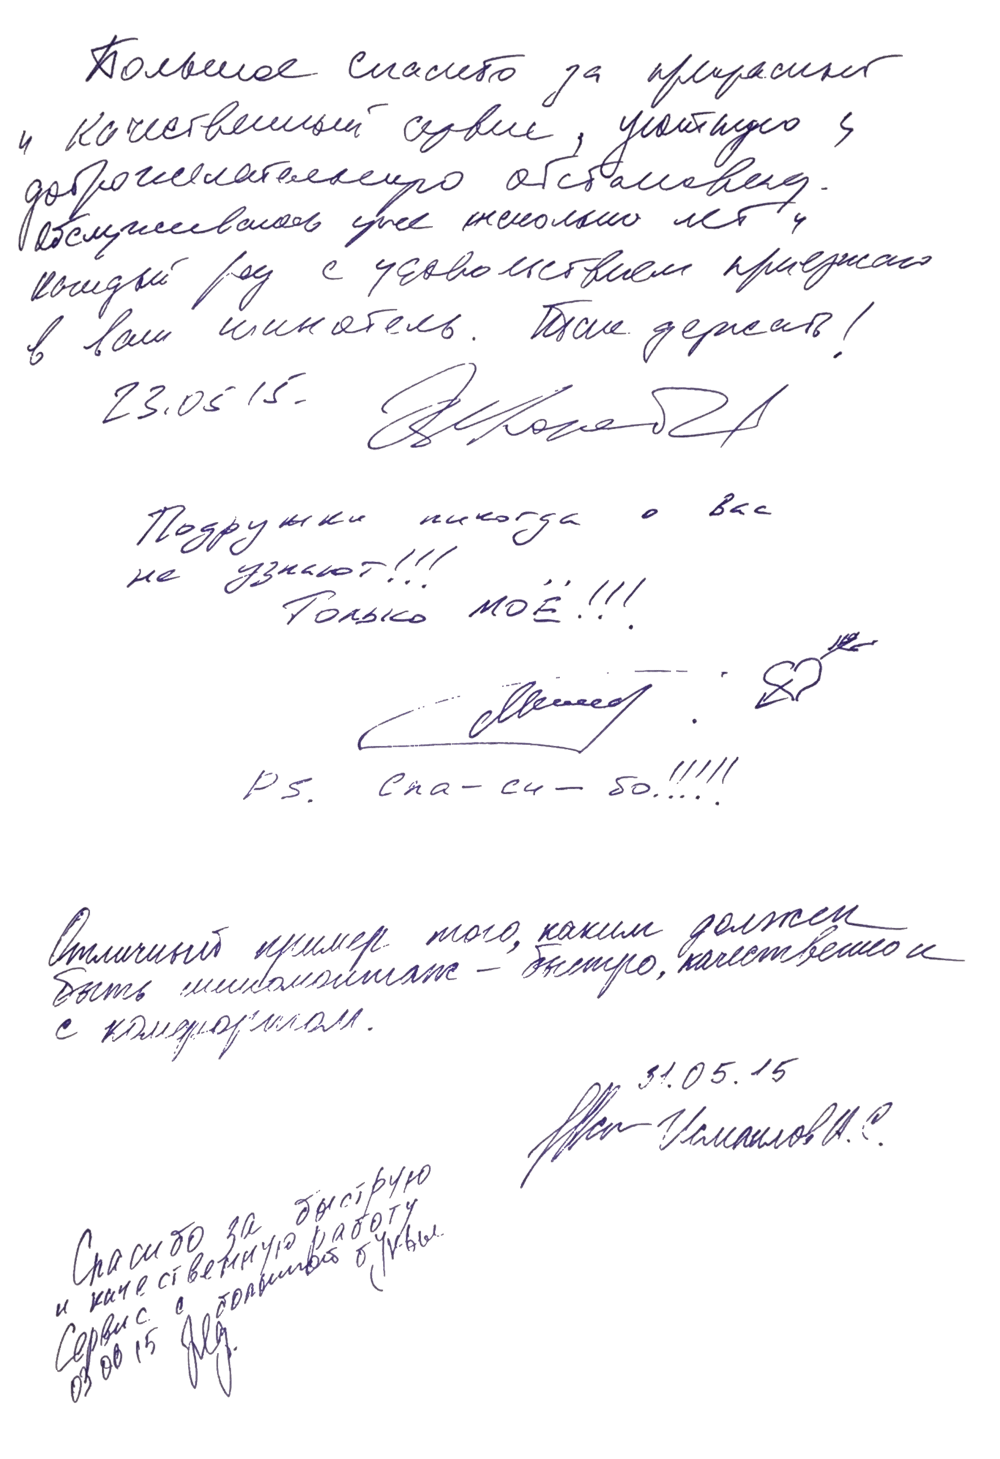 Большое спасибо за прекрасный
и качественный сервис, уютную и
доброжелательную обстановку.
Обслуживаюсь уже несколько лет и
каждый раз с удовольствием приезжаю
в ваш шинотель. Так держать!
23.05 15.
Подружки никогда о Вас
не узнают!!!
Только МОЁ!!!
PS. Спа-си-бо!!!!!
Отличный пример того, каким должен
быть шиномонтаж - быстро, качественно и
с комфортом.
31.05.15
Исмаилов И.С.
Спасибо за быструю
и качественную работу
Сервис с большой буквы.
03 06 15